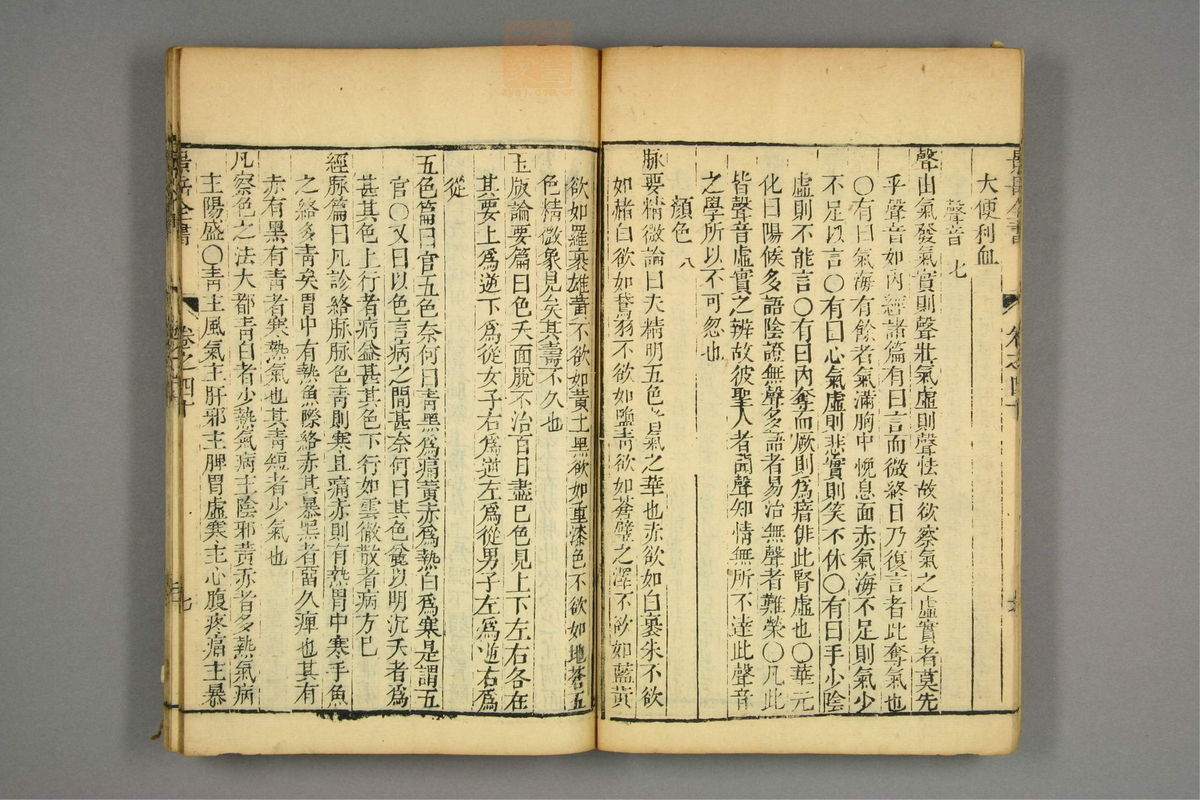 大便利血
聲音 七
聲由氣發氣實則聲壯氣虛則聲怯故欲察氣之虛實者莫先
乎聲音如內經諸篇有曰言而微終日乃復言者此奪氣也
〇有曰氣海有餘者氣滿胸中悗息面赤氣海不足則氣少
不足以言〇有曰心氣虛則悲實則笑不休〇有曰手少陰
虛則不能言〇有曰內奪而厥則為瘖俳此腎虛也〇華元
化曰陽候多語陰證無聲多語者易治無聲者難榮〇凡此
皆聲音虛實之辨故彼聖人者聞聲知情無所不達此聲音
之學所以不可忽也
顏色 八
脉要精微論曰夫精明五色者氣之華也赤欲如白裹朱不欲
如赭白欲如鵞羽不欲如鹽青欲如蒼璧之澤不欲如藍黃
欲如羅裹雄黃不欲如黃土黑欲如重漆色不欲如地蒼五
色精微象見矣其壽不久也
玉版論要篇曰色夭面脫不治百日盡已色見上下左右各在
其要上為逆下為從女子右為逆左為從男子左為逆右為
從
五色篇曰官五色奈何曰青黑為痛黃赤為熱白為寒是謂五
官〇又曰以色言病之間甚奈何曰其色麄以明沉夭者為
甚其色上行者病益甚其色下行如雲徹散者病方已
經脉篇曰凡診絡脉脉色青則寒且痛赤則有熱胃中寒手魚
之絡多青矣胃中有熱魚際絡赤其暴黑者留久痺也其有
赤有黑有青者寒熱氣也其青短者少氣也
凡察色之法大都青白者少熱氣病主陰邪黃赤者多熱氣病
主陽盛〇青主風氣主肝邪主脾胃虛寒主心腹疼痛主暴
景岳全書
卷之四十
七